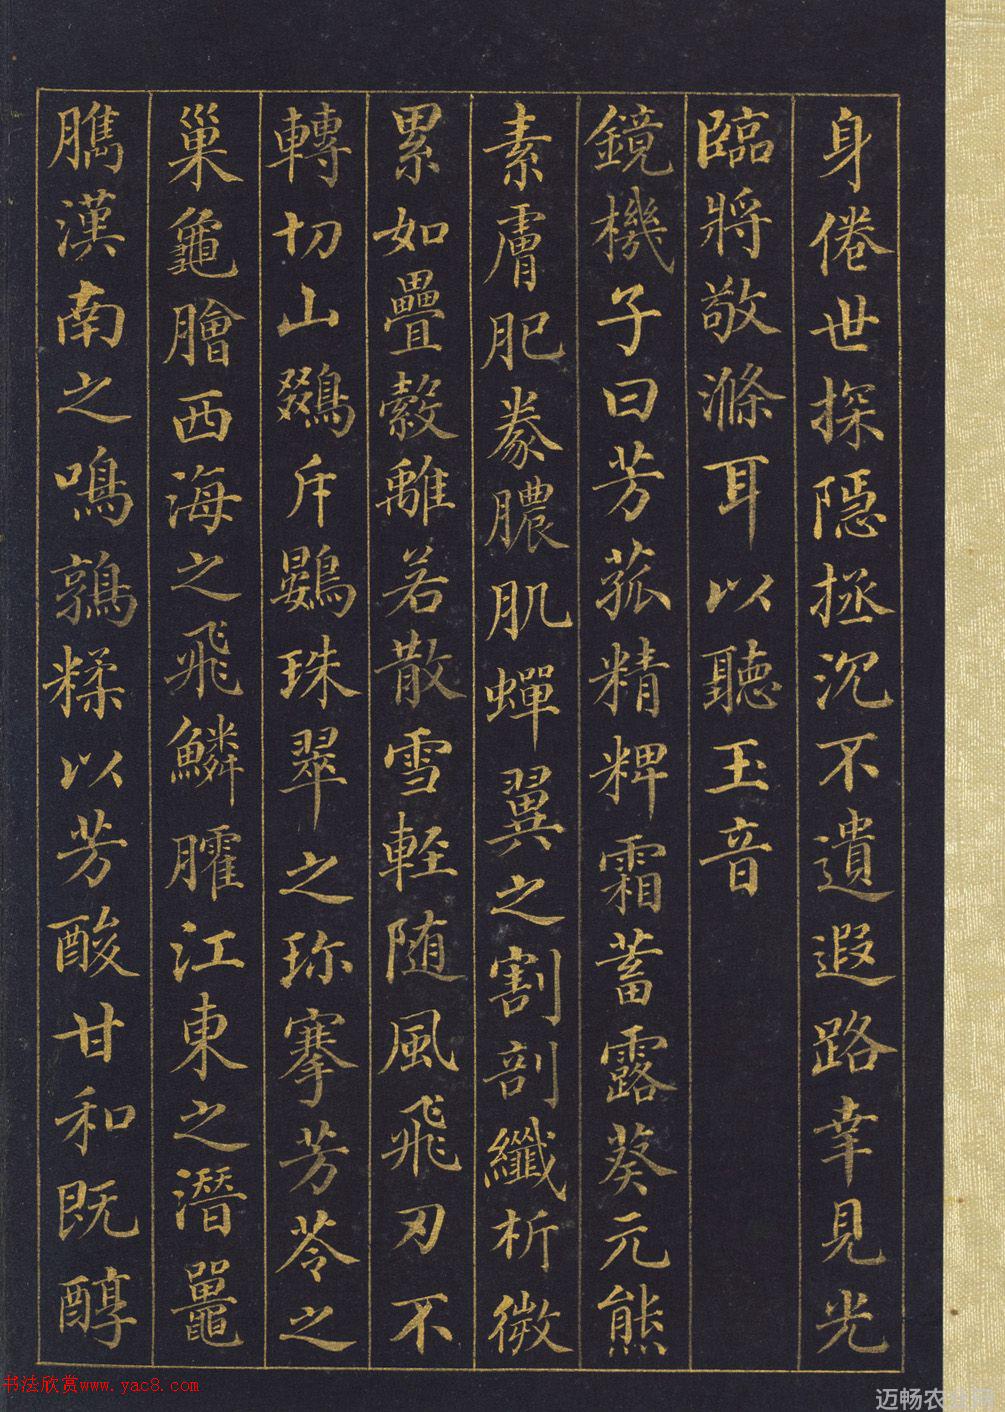 身倦世探隠拯沉不遺遐路幸見光
臨將敬滌耳以聽玉音
鏡機子曰芳菰精粺霜蓄露葵元熊
素膚肥豢膿肌蟬翼之割剖纖析微
累如疊縠離若散雪輕随風飛刃不
轉切山鵽斥鷃珠翠之珎搴芳苓之
巢龜膾西海之飛鱗臛江東之潛鼉
臇漢南之鳴鶉糅以芳酸甘和既醇
书法欣赏www.yac8.com
迈畅农